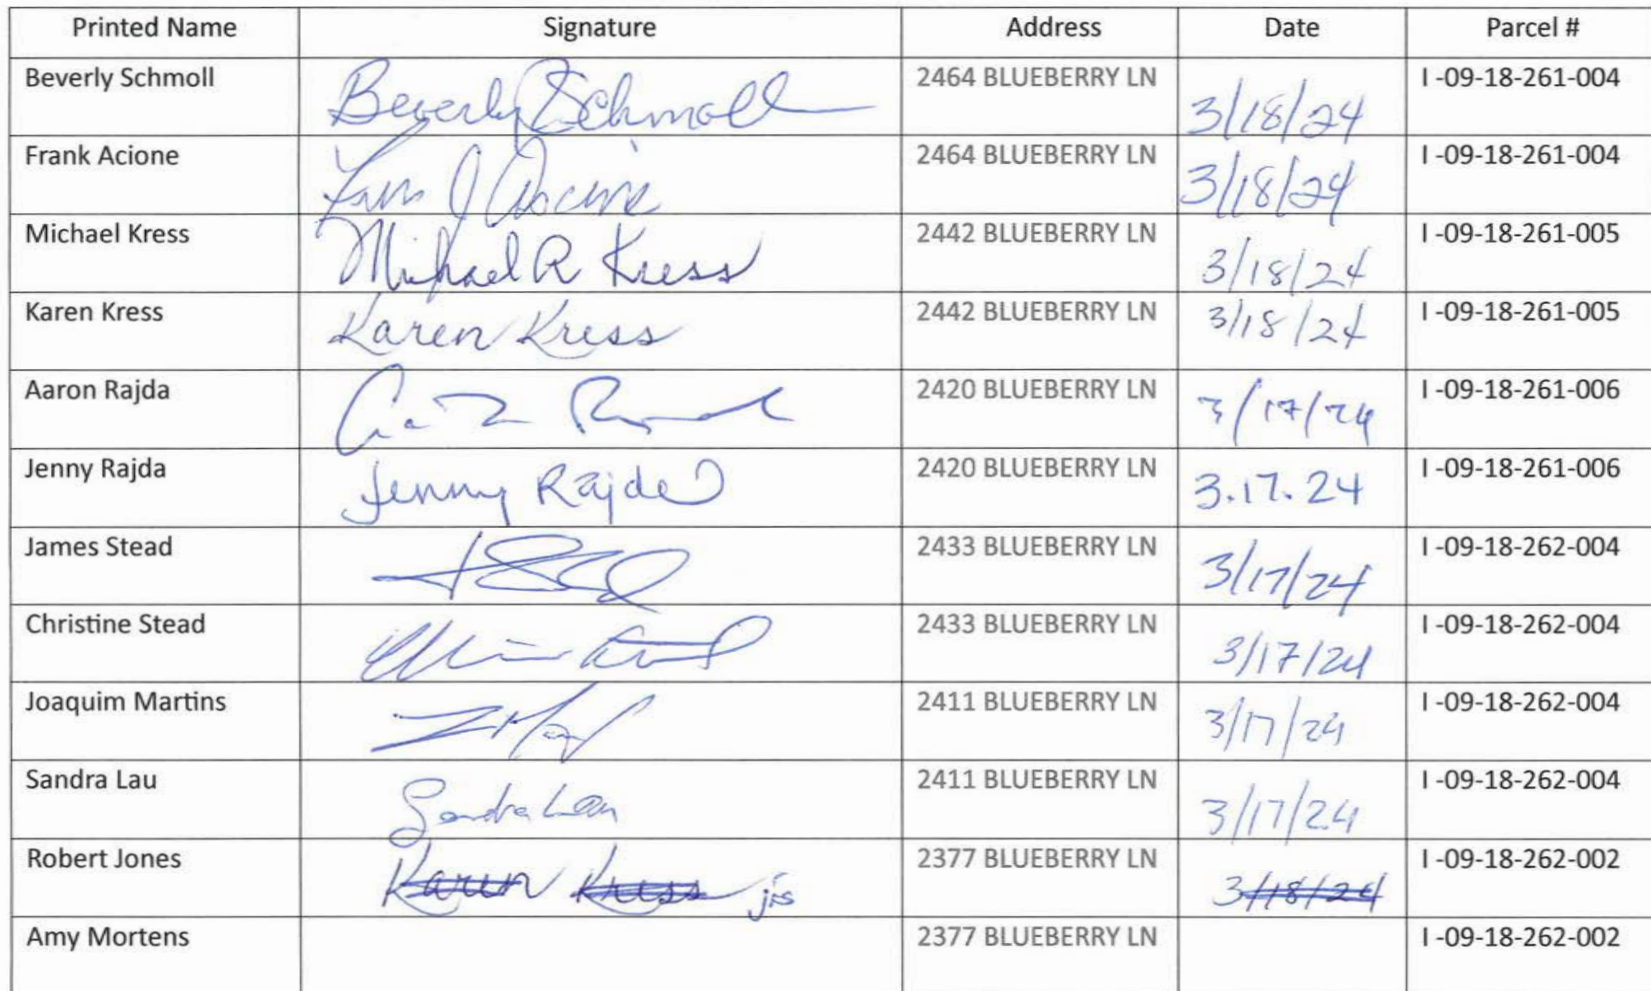 Printed Name Signature Address Date Parcel #
Beverly Schmoll Beverly Schmoll 2464 BLUEBERRY LN 3/18/24 I -09-18-261-004
Frank Acione 2464 BLUEBERRY LN 3/18/24 I -09-18-261-004
Michael Kress Michael R Kress 2442 BLUEBERRY LN 3/18/24 I -09-18-261-005
Karen Kress Karen Kress 2442 BLUEBERRY LN 3/18/24 I -09-18-261-005
Aaron Rajda 2420 BLUEBERRY LN 3/17/24 I -09-18-261-006
Jenny Rajda Jenny Rajda 2420 BLUEBERRY LN 3.17.24 I -09-18-261-006
James Stead 2433 BLUEBERRY LN 3/17/24 I -09-18-262-004
Christine Stead 2433 BLUEBERRY LN 3/17/24 I -09-18-262-004
Joaquim Martins 2411 BLUEBERRY LN 3/17/24 I -09-18-262-004
Sandra Lau Sandra Lau 2411 BLUEBERRY LN 3/17/24 I -09-18-262-004
Robert Jones Karen Kress jrs 2377 BLUEBERRY LN 3/18/24 I -09-18-262-002
Amy Mortens 2377 BLUEBERRY LN I -09-18-262-002